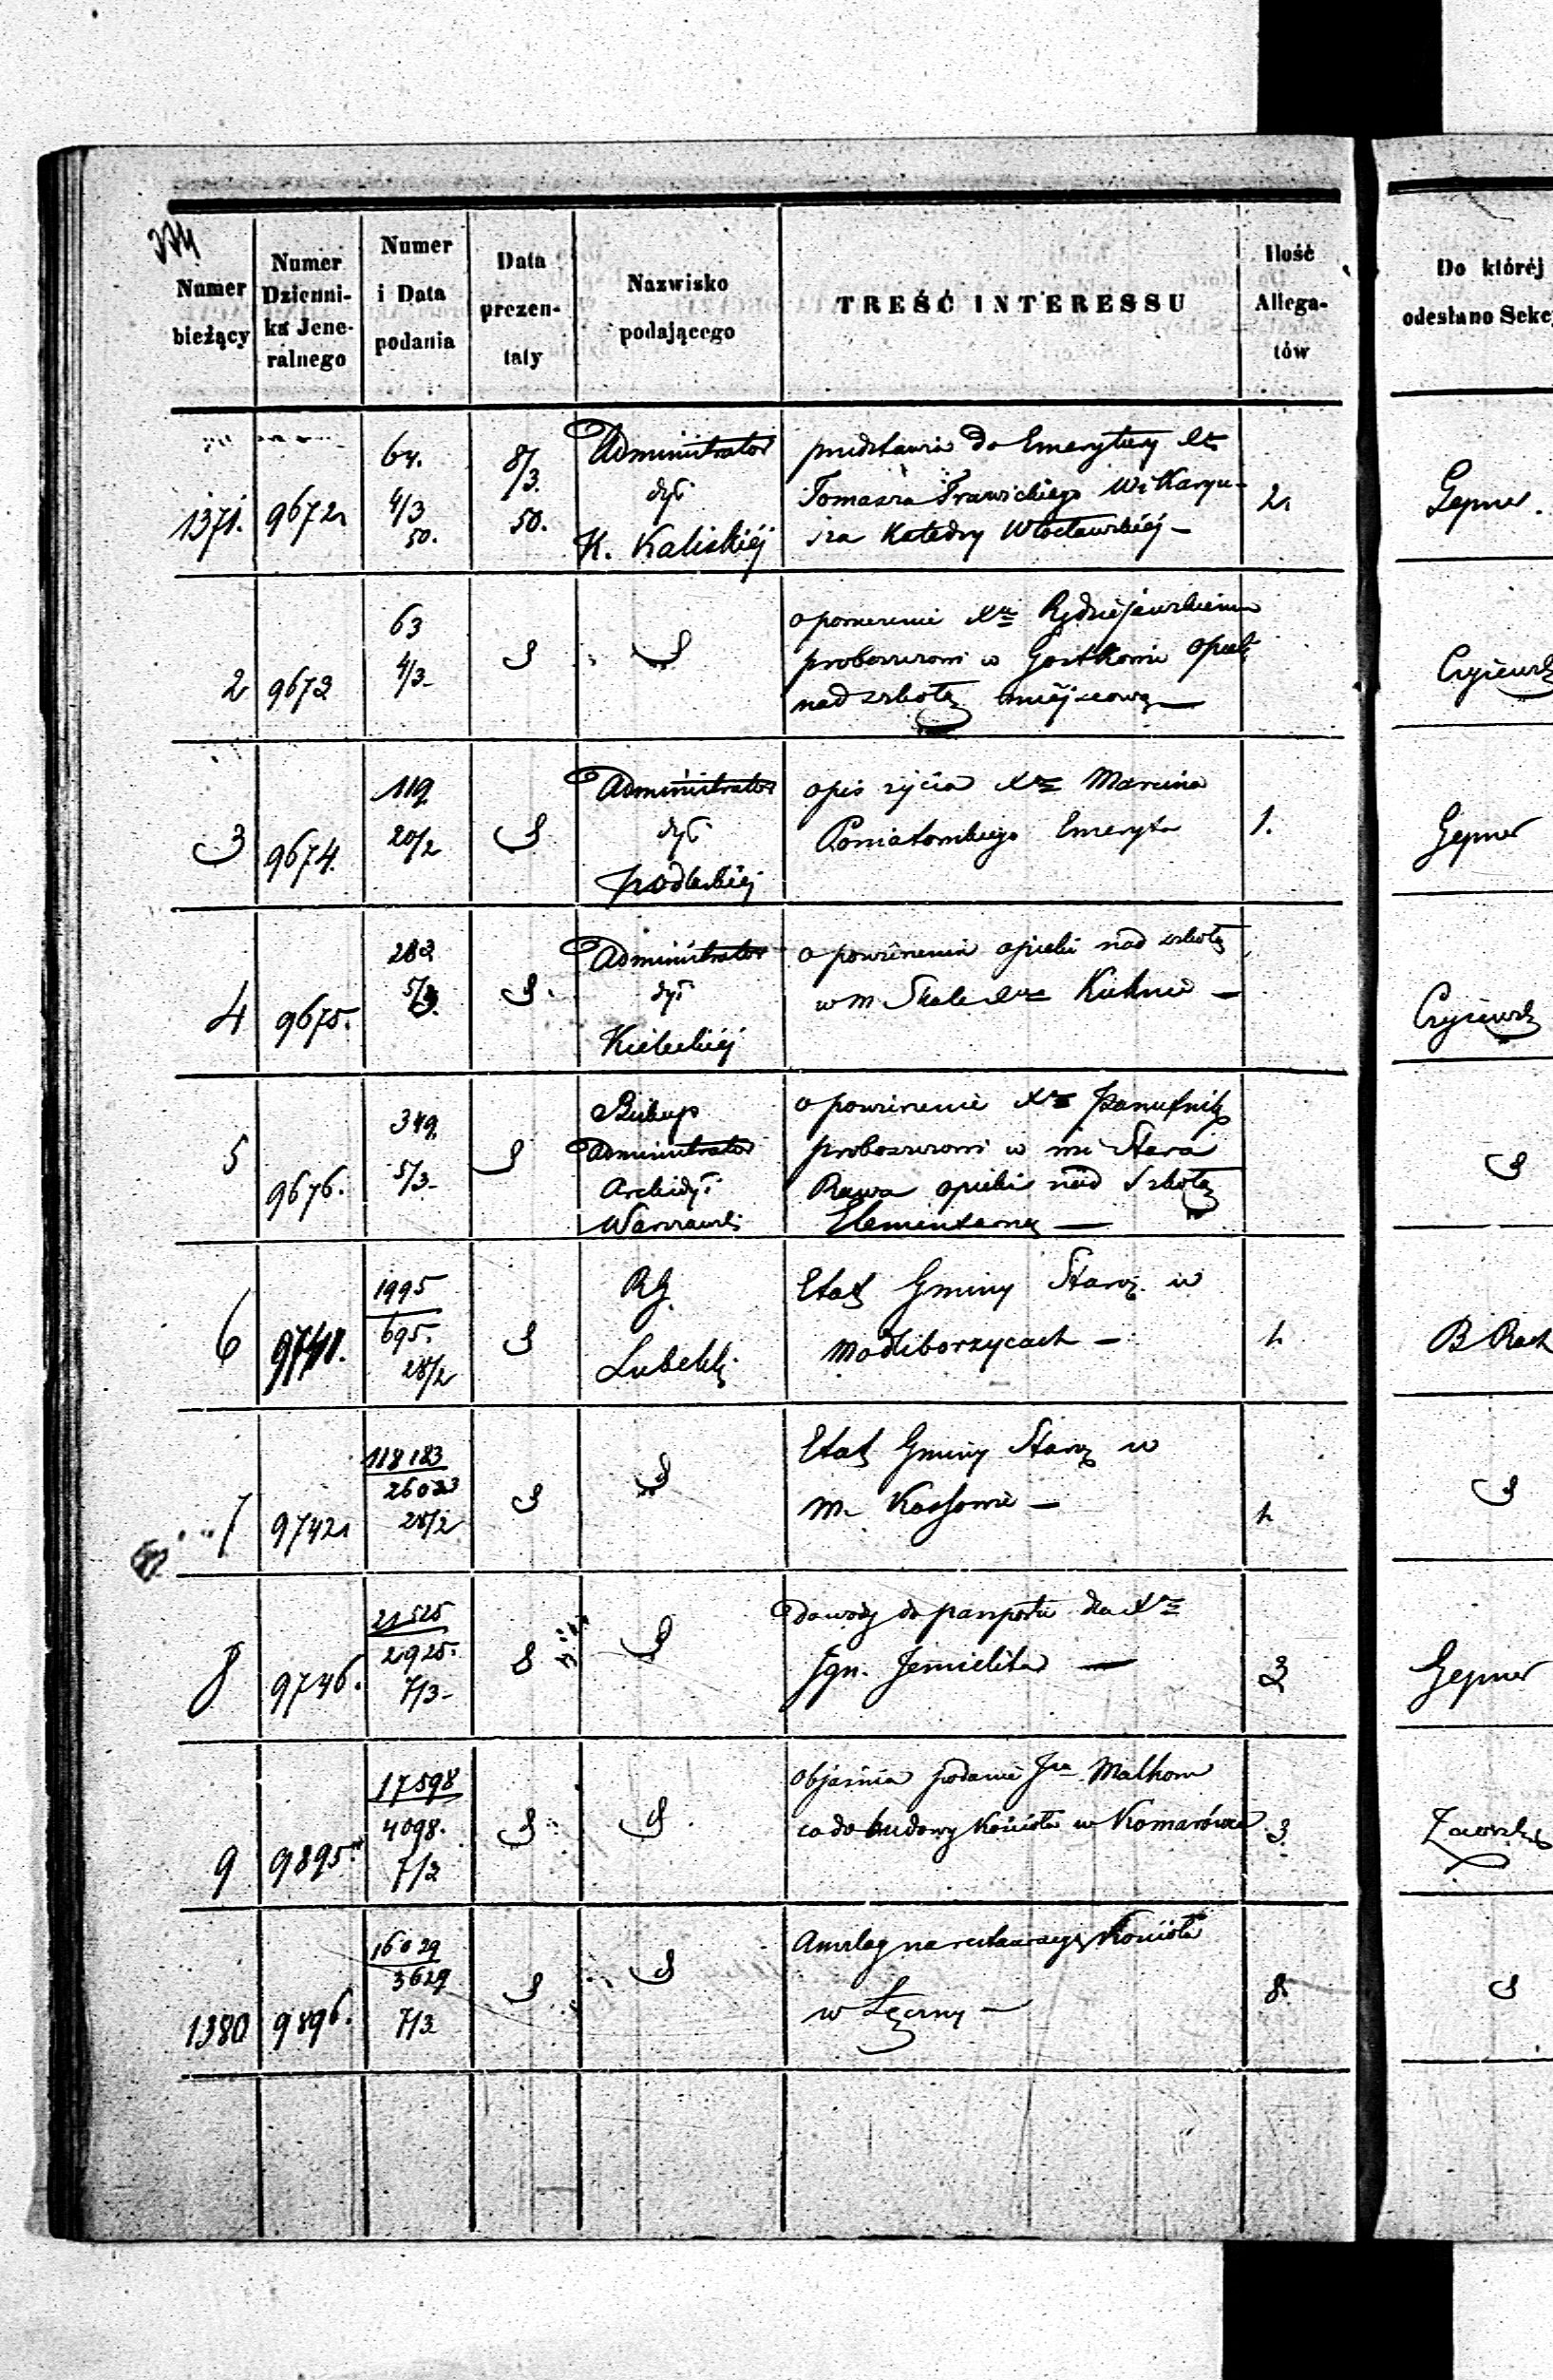 274
Numer bieżący
Numer Dzienni- ka Jene- ralnego
Numer i Data podania
Data prezen- taty
Nazwisko podającego
TREŚĆ INTERESSU
Ilość Allega- tów
Do któréj odesłano Sekc
1371. 9672 64. 4/3 50. 8/3. 50. Administrator dyc K. Kaliskiéj
przedstawia do Emerytury
Tomasza Trawickiego Wikaryu-
sza Katedry Włocławskiéj —
2 Gepner.
2 9673 63 4/3-
o powierzenie Rydziejewskiemu
proboszczowi w Gostkowie opieki
nad szkołą miéjscową —
Czyżewsk
3 9674. 119 20/2 Administrator dyc Podlaskiéj
opis życia Xa Marcina
Poniatowskiego Emeryta
1. Gepner
4 9675. 283 5/3. Administrator dyc Kieleckiéj
o powierzenie opieki nad szkołą
w m. Skale —
Czyżewsk
5 9676. 349. 5/3- Biskup Administrator Archidyi Warszawski
o powierzenie
proboszczowi w Stara
Rawa opieki nad Szkołą
Elementarną —
6 9741. 1995 695. 28/2 RG. Lubelski
Etat Gminy Staroz. w
Modliborzycach —
B Rach
7 9742 118183 26023 28/2
Etat Gminy Staroz w
m. Kossowie —
8 9746. 21525 2925. 7/3-
Dowody do paszportu dla Xa
Ign. Jemielita —
3 Gepner
9 9895. 17598 4098. 7/3
Objaśnia podanie Malhom
co do budowy Kościoła w Komarówce
3.
1380 9896. 16029 3629 7/3
Anszlag na restauracyą Kościoła
w Łęczny —
8.